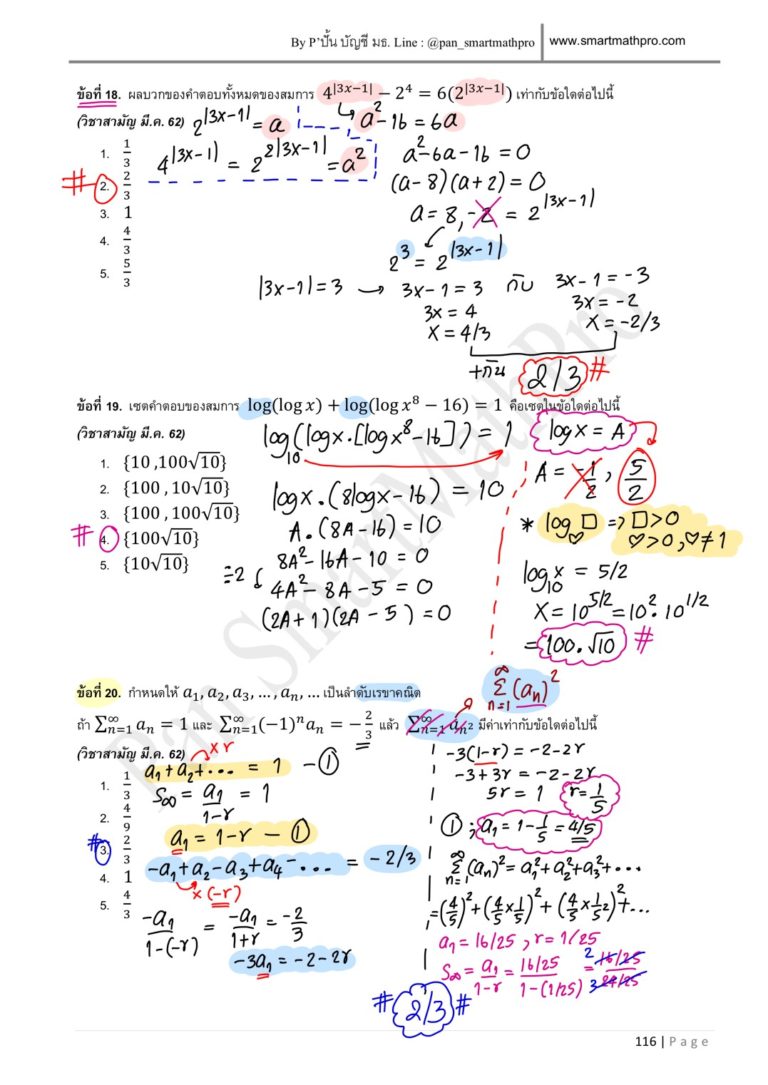 By P'ปั้น บัญชี มธ. Line : @pan_smartmathpro | www.smartmathpro.com
ข้อที่ 18. ผลบวกของคำตอบทั้งหมดของสมการ 4^|3x−1| − 2^4 = 6(2^|3x−1|) เท่ากับข้อใดต่อไปนี้
(วิชาสามัญ มี.ค. 62) 2^|3x-1| = a
a²-16 = 6a
1. 1/3
4^|3x-1| = 2^2|3x-1| = a²
a²-6a-16 = 0
# 2. 2/3
(a-8)(a+2) = 0
3. 1
a = 8, -2 = 2^|3x-1|
4. 4/3
2^3 = 2^|3x-1|
5. 5/3
|3x-1| = 3 → 3x-1 = 3 กับ 3x-1 = -3
3x = 4
3x = -2
x = 4/3
x = -2/3
+กัน 2/3 #
ข้อที่ 19. เซตคำตอบของสมการ log(log x) + log(log x^8 − 16) = 1 คือเซตในข้อใดต่อไปนี้
(วิชาสามัญ มี.ค. 62)
log_10(logx·[logx^8-16]) = 1
logx = A
1. {10 ,100√10}
2. {100 , 10√10}
3. {100 , 100√10}
# 4. {100√10}
5. {10√10}
logx·(8logx-16) = 10
A·(8A-16) = 10
8A²-16A-10 = 0
÷2 4A²-8A-5 = 0
(2A+1)(2A-5) = 0
A = -1/2, 5/2
* log_♡ □ => □>0
♡>0, ♡≠1
log_10 x = 5/2
X = 10^5/2 = 10²·10^1/2
= 100·√10 #
ข้อที่ 20. กำหนดให้ a₁, a₂, a₃, … , aₙ, … เป็นลำดับเรขาคณิต
∞Σn=1 (aₙ)²
ถ้า Σ∞n=1 aₙ = 1 และ Σ∞n=1(−1)ⁿaₙ = −2/3 แล้ว Σ∞n=1 aₙ² มีค่าเท่ากับข้อใดต่อไปนี้
(วิชาสามัญ มี.ค. 62) xr
1. 1/3
2. 4/9
# 3. 2/3
4. 1
5. 4/3
a₁+a₂+... = 1 —①
S∞ = a₁/1-r = 1
a₁ = 1-r —①
-a₁+a₂-a₃+a₄-... = -2/3
x(-r)
-a₁/1-(-r) = -a₁/1+r = -2/3
-3a₁ = -2-2r
-3(1-r) = -2-2r
-3+3r = -2-2r
5r = 1 r = 1/5
① ; a₁ = 1-1/5 = 4/5
∞Σn=1 (aₙ)² = a₁²+a₂²+a₃²+...
=(4/5)²+(4/5×1/5)²+(4/5×1/5²)²+...
a₁ = 16/25 , r = 1/25
S∞ = a₁/1-r = 16/25/1-(1/25) = 2 16/25/3 24/25
# 2/3 #
116 | Page
Pan SmartMathPro